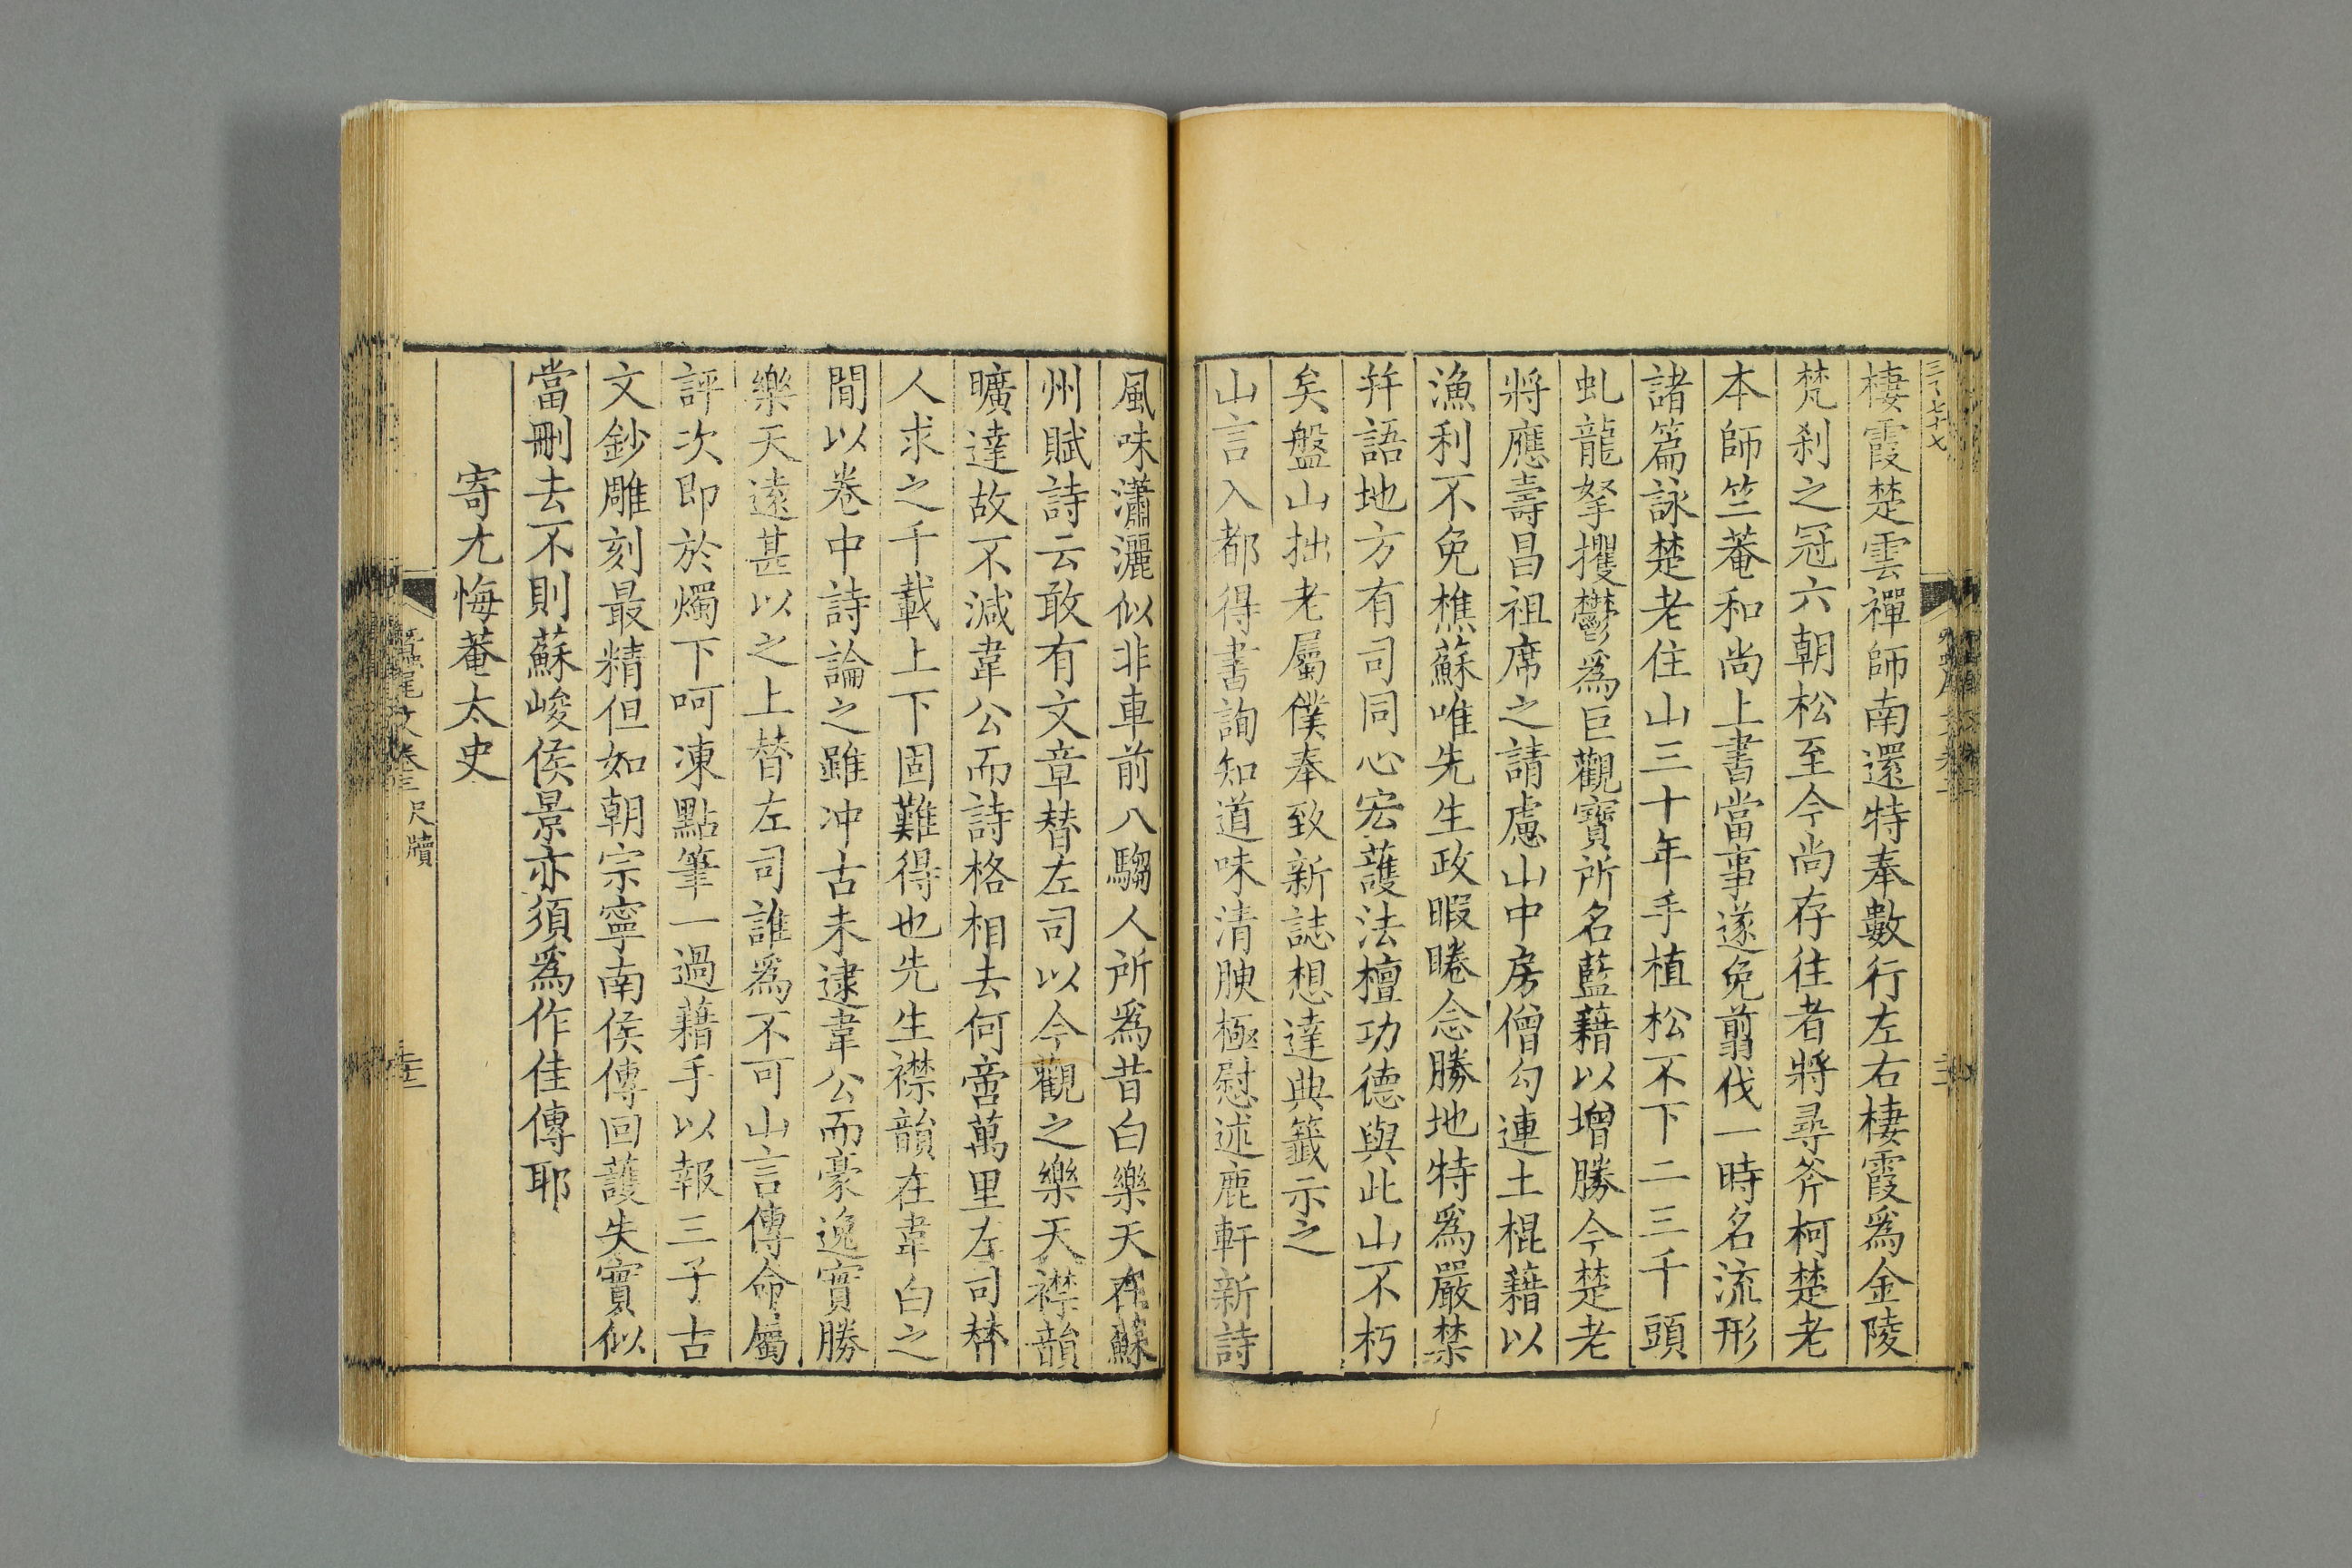 棲霞楚雲禪師南還特奉數行左右棲霞爲金陵
梵刹之冠六朝松至今尚存往者將尋斧柯楚老
本師竺菴和尚上書當事遂免翦伐一時名流形
諸篇詠楚老住山三十年手植松不下二三千頭
虬龍拏攫鬱爲巨觀寶所名藍藉以增勝今楚老
將應壽昌祖席之請慮山中房僧勾連土棍藉以
漁利不免樵蘇唯先生政暇睠念勝地特爲嚴禁
并語地方有司同心宏護法檀功德與此山不朽
矣盤山拙老屬僕奉致新誌想達典籤示之
山言入都得書詢知道味清腴極慰述鹿軒新詩
風味瀟灑似非車前八騶人所爲昔白樂天在蘇
州賦詩云敢有文章替左司以今觀之樂天襟韻
曠達故不減韋公而詩格相去何啻萬里左司替
人求之千載上下固難得也先生襟韻在韋白之
間以卷中詩論之雖冲古未逮韋公而豪逸實勝
樂天遠甚以之上替左司誰爲不可山言傳命屬
評次即於燭下呵凍點筆一過藉手以報三子古
文鈔雕刻最精但如朝宗寧南侯傳回護失實似
當刪去不則蘇峻侯景亦須爲作佳傳耶
寄尤悔菴太史
蠶尾文卷
尺牘